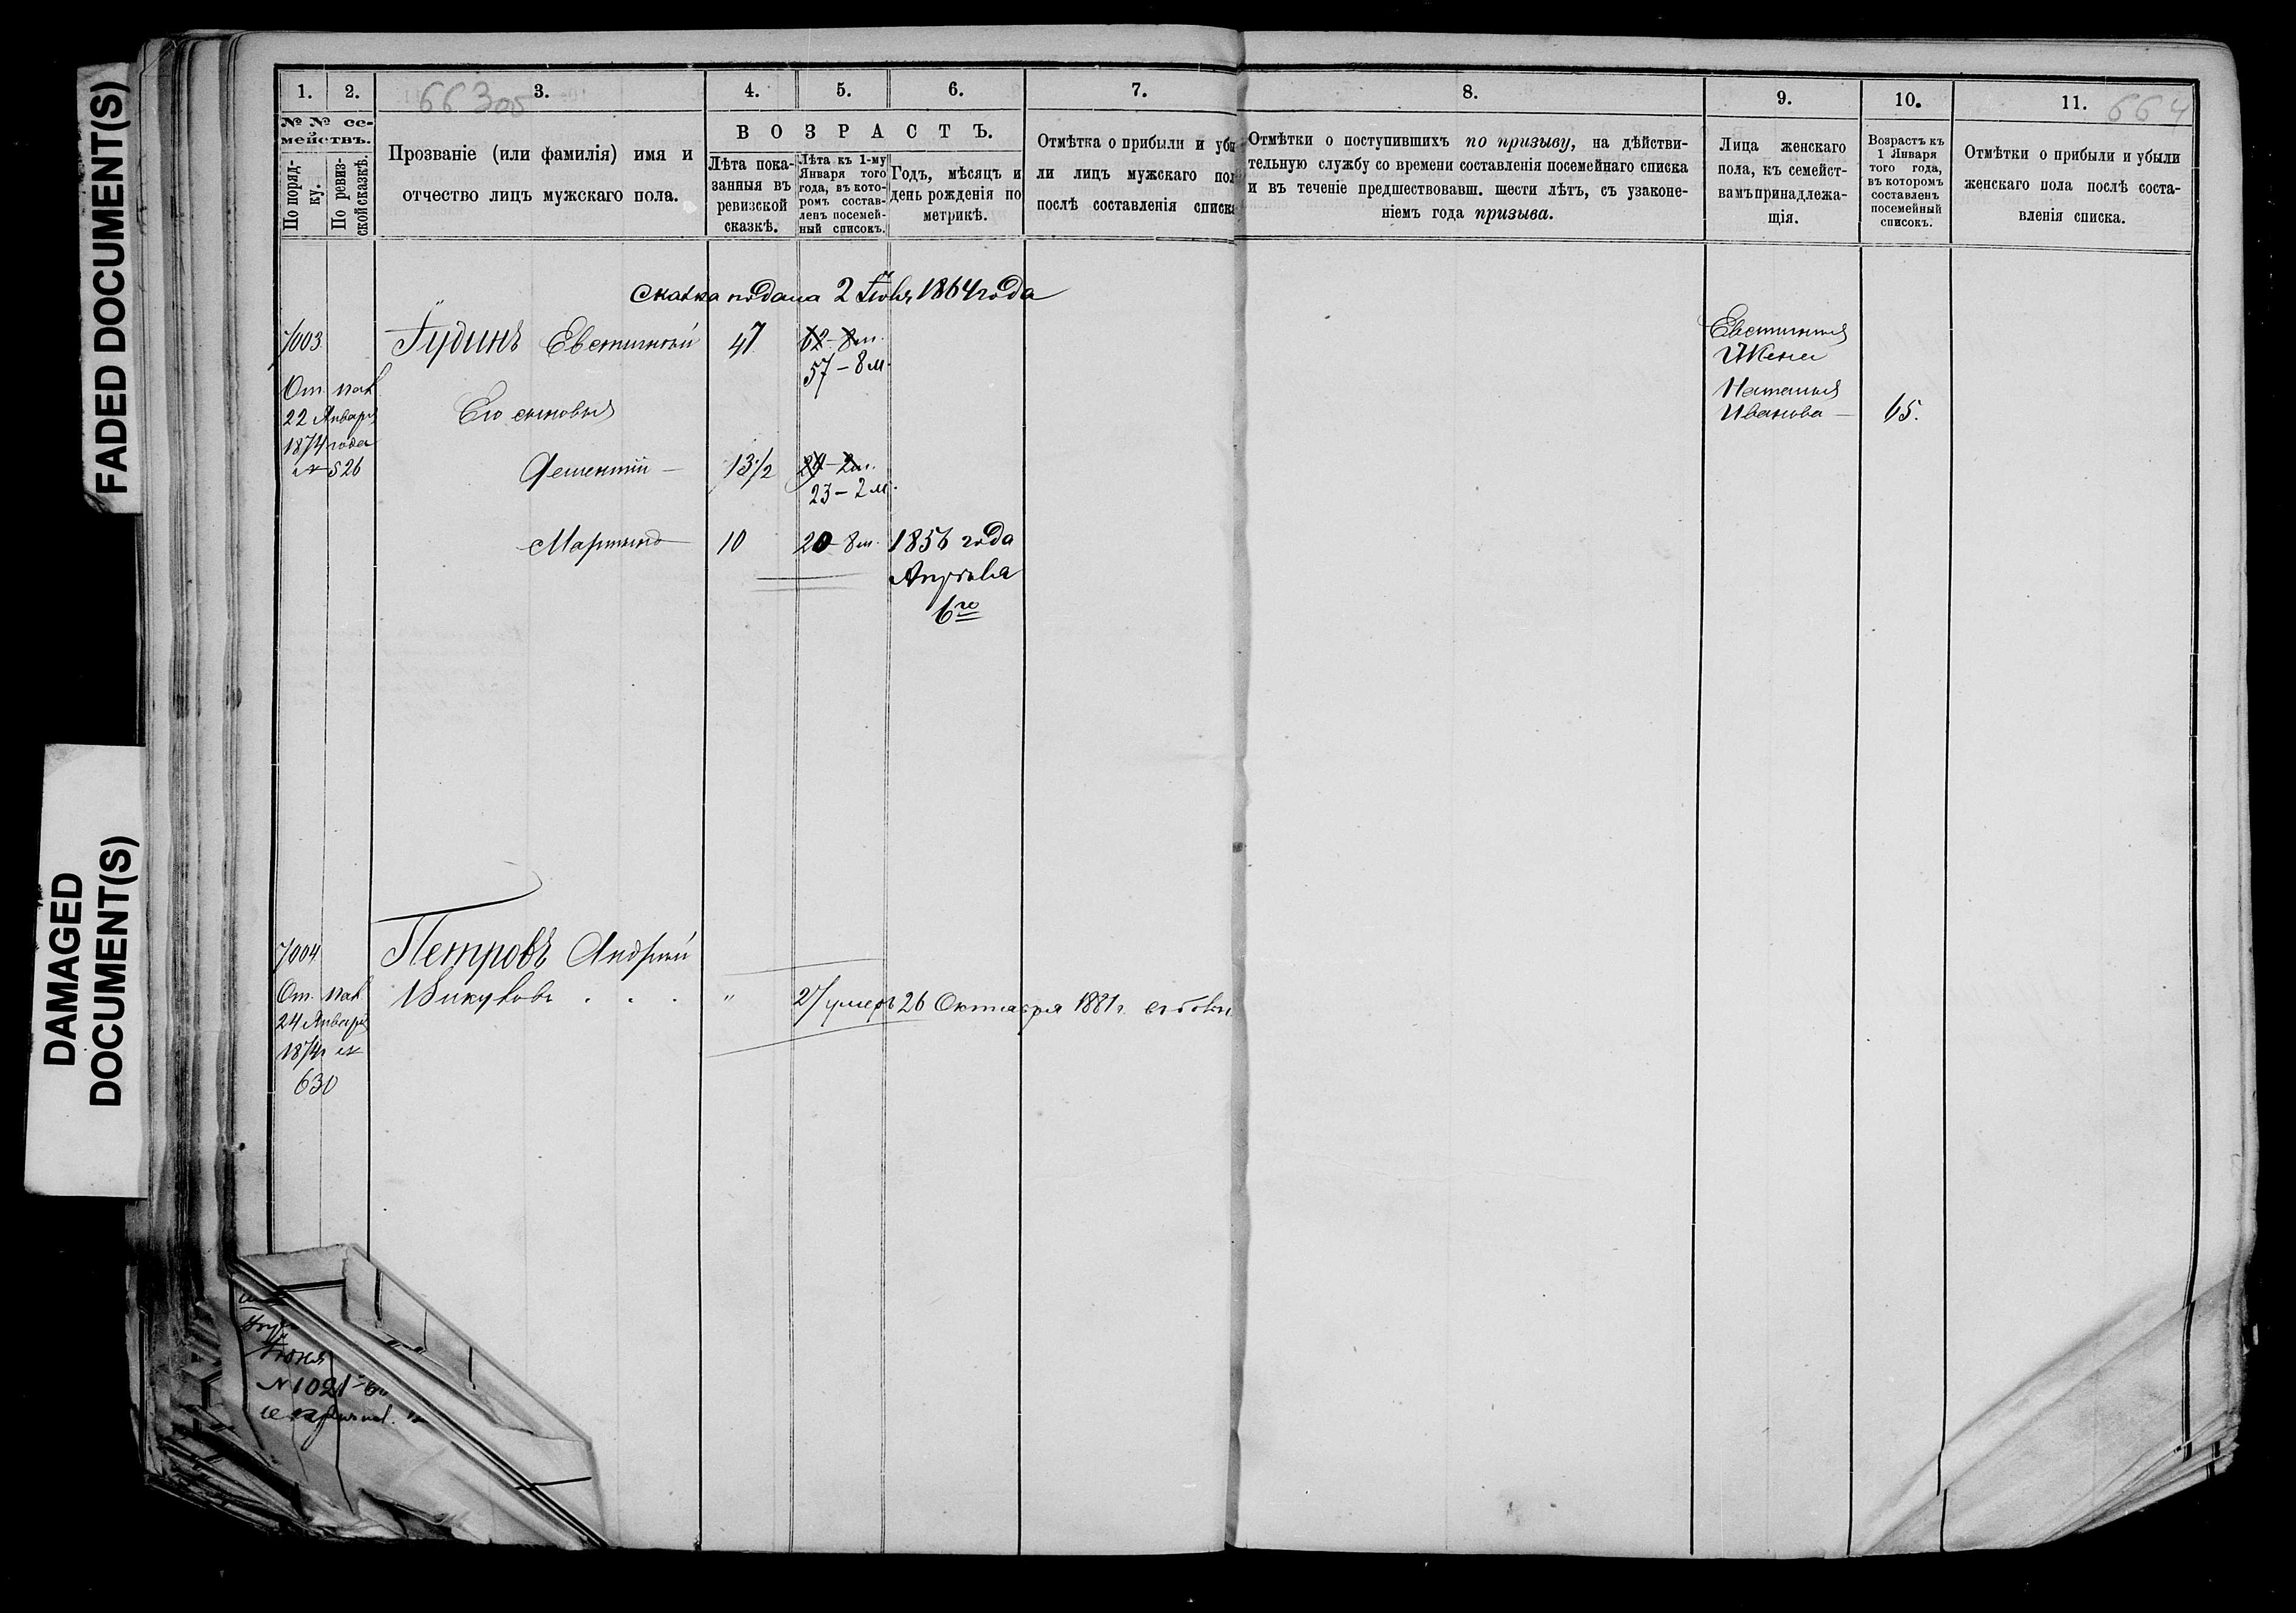 FADED DOCUMENT(S)
DAMAGED
DOCUMENT(S)
1.
2.
3.
4.
5.
6.
7.
8.
9.
10.
11.
664
№ № се-
мействъ.
По поряд-
ку.
По ревиз-
ской сказкѣ.
Прозваніе (или фамилія) имя и
отчество лицъ мужскаго пола.
ВОЗРАСТЪ.
Лѣта пока-
занныя въ
ревизской
сказкѣ.
Лѣта къ 1-му
Января того
года, въ кото-
ромъ состав-
ленъ посемей-
ный списокъ.
Годъ, мѣсяцъ и
день рожденія по
метрикѣ.
Отмѣтка о прибыли и убы
ли лицъ мужскаго пол
послѣ составленія списк
Отмѣтки о поступившихъ по призыву, на дѣйстви-
тельную службу со времени составленія посемейнаго списка
и въ теченіе предшествовавш. шести лѣтъ, съ узаконе-
ніемъ года призыва.
Лица женскаго
пола, къ семейст-
вамъ принадлежа-
щія.
Возрастъ къ
1 Января
того года,
въ которомъ
составленъ
посемейный
списокъ.
Отмѣтки о прибыли и убыли
женскаго пола послѣ соста-
вленія списка.
Сказка подана 2 1864 года
7003
Гудинъ Евстигней 47
62 - 8 м.
57 - 8 м.
От. пок.
22 Января
1874 года
№ 526
Его сыновья
Дементій — 13 1/2
24 - 2 м.
23 - 2 м.
Мартынъ 10 20 - 8 м. 1856 года
Апрѣля
6го
Евстигнея
Жена
Наталья
Иванова — 65.
7004
Петровъ Андрей
От. пок.
24 Января
1874 №
630
Викуловъ . . . " 27 умеръ 26 Октября 1881 г.
Іюня
№ 1021